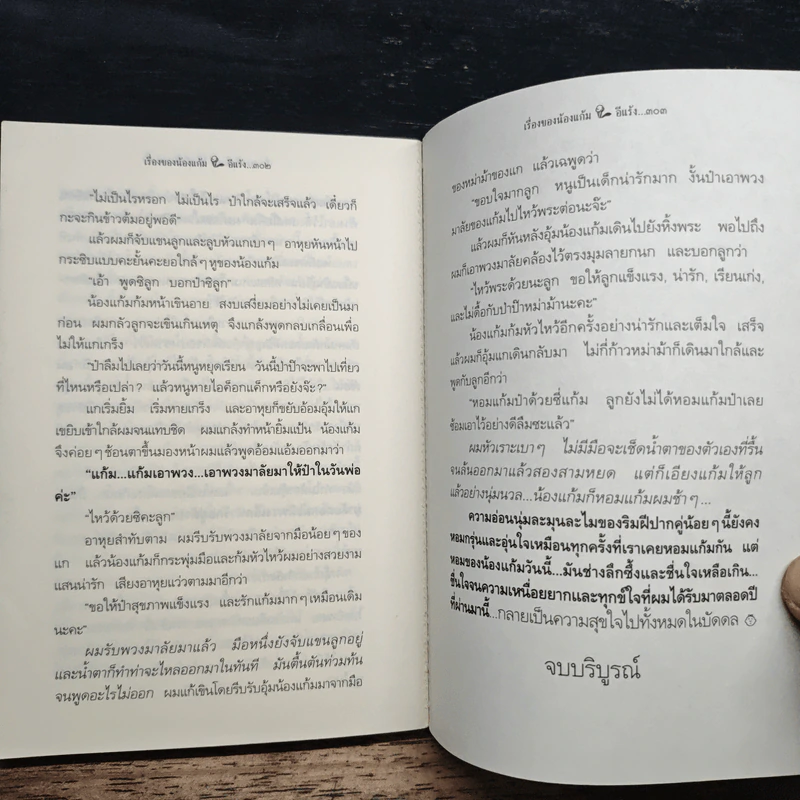 เรื่องของน้องแก้ม อีแร้ง...๓๐๒
“ไม่เป็นไรหรอก ไม่เป็นไร ป๋าใกล้จะเสร็จแล้ว เดี๋ยวก็
กะจะกินข้าวต้มอยู่พอดี”
แล้วผมก็จับแขนลูกและลูบหัวแกเบาๆ อาหุยหันหน้าไป
กระซิบแบบคะยั้นคะยอใกล้ๆ หูของน้องแก้ม
“เอ้า พูดซิลูก บอกป๋าซิลูก”
น้องแก้มก้มหน้าเขินอาย สงบเสงี่ยมอย่างไม่เคยเป็นมา
ก่อน ผมกลัวลูกจะเขินเกินเหตุ จึงแกล้งพูดกลบเกลื่อนเพื่อ
ไม่ให้แกเกร็ง
“ป๋าลืมไปเลยว่าวันนี้หนูหยุดเรียน วันนี้ป๋าป๊าจะพาไปเที่ยว
ที่ไหนหรือเปล่า? แล้วหนูหายไอค็อกแค็กหรือยังจ๊ะ?”
แกเริ่มยิ้ม เริ่มหายเกร็ง และอาหุยก็ขยับอ้อมอุ้มให้แก
เขยิบเข้าใกล้ผมจนแทบชิด ผมแกล้งทำหน้ายิ้มแป้น น้องแก้ม
จึงค่อยๆ ช้อนตาขึ้นมองหน้าผมแล้วพูดอ้อมแอ้มออกมาว่า
“แก้ม...แก้มเอาพวง...เอาพวงมาลัยมาให้ป๋าในวันพ่อ
ค่ะ”
“ไหว้ด้วยซิคะลูก”
อาหุยสำทับตาม ผมรีบรับพวงมาลัยจากมือน้อยๆ ของ
แก แล้วน้องแก้มก็กระพุ่มมือและก้มหัวไหว้ผมอย่างสวยงาม
แสนน่ารัก เสียงอาหุยแว่วตามมาอีกว่า
“ขอให้ป๋าสุขภาพแข็งแรง และรักแก้มมากๆ เหมือนเดิม
นะคะ”
ผมรับพวงมาลัยมาแล้ว มือหนึ่งยังจับแขนลูกอยู่
และน้ำตาก็ทำท่าจะไหลออกมาในทันที มันตื้นตันท่วมท้น
จนพูดอะไรไม่ออก ผมแก้เขินโดยรีบรับอุ้มน้องแก้มมาจากมือ
เรื่องของน้องแก้ม อีแร้ง...๓๐๓
ของหม่าม้าของแก แล้วเฉพูดว่า
“ขอบใจมากลูก หนูเป็นเด็กน่ารักมาก งั้นป๋าเอาพวง
มาลัยของแก้มไปไหว้พระต่อนะจ๊ะ”
แล้วผมก็หันหลังอุ้มน้องแก้มเดินไปยังหิ้งพระ พอไปถึง
ผมก็เอาพวงมาลัยคล้องไว้ตรงมุมลายกนก และบอกลูกว่า
“ไหว้พระด้วยนะลูก ขอให้ลูกแข็งแรง, น่ารัก, เรียนเก่ง,
และไม่ดื้อกับป๋าป๊าหม่าม้านะคะ”
น้องแก้มก้มหัวไหว้อีกครั้งอย่างน่ารักและเต็มใจ เสร็จ
แล้วผมก็อุ้มแกเดินกลับมา ไม่กี่ก้าวหม่าม้าก็เดินมาใกล้และ
พูดกับลูกอีกว่า
“หอมแก้มป๋าด้วยซี่แก้ม ลูกยังไม่ได้หอมแก้มป๋าเลย
ซ้อมเอาไว้อย่าดีลืมซะแล้ว”
ผมหัวเราะเบาๆ ไม่มีมือจะเช็ดน้ำตาของตัวเองที่รื้น
จนล้นออกมาแล้วสองสามหยด แต่ก็เอียงแก้มให้ลูก
แล้วอย่างนุ่มนวล...น้องแก้มก็หอมแก้มผมช้าๆ...
ความอ่อนนุ่มละมุนละไมของริมฝีปากคู่น้อยๆ นี้ยังคง
หอมกรุ่นและอุ่นใจเหมือนทุกครั้งที่เราเคยหอมแก้มกัน แต่
หอมของน้องแก้มวันนี้...มันช่างลึกซึ้งและชื่นใจเหลือเกิน...
ชื่นใจจนความเหนื่อยยากและทุกข์ใจที่ผมได้รับมาตลอดปี
ที่ผ่านมานี้...กลายเป็นความสุขใจไปทั้งหมดในบัดดล
จบบริบูรณ์